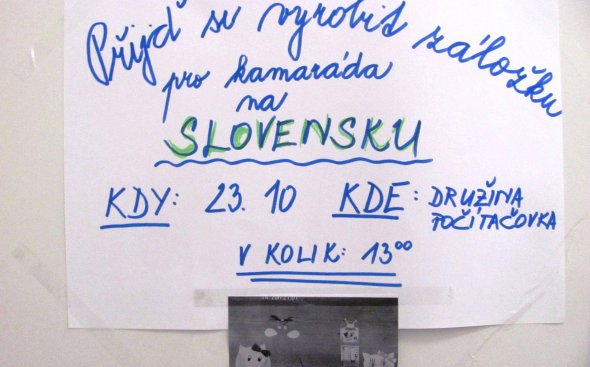 Přijď si vyrobit záložku
pro kamaráda
na
SLOVENSKU
KDY: 23. 10 KDE: DRUŽINA
POČÍTAČOVKA
V KOLIK: 13⁰⁰